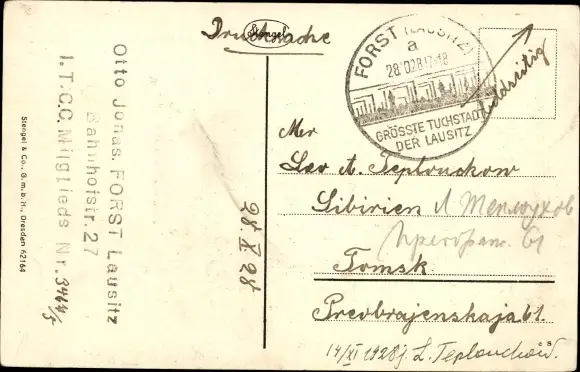 Drucksache
Stengel
FORST (LAUSITZ)
a
28.10.28.17-18
GRÖSSTE TUCHSTADT
DER LAUSITZ
bildseitig
Otto Jonas. FORST Lausitz
Bahnhofstr. 27
I.T.C.C. Mitglieds Nr. 3464/5
Stengel & Co., G. m. b. H., Dresden 62164
28. X. 28
Mer
Leo A. Teplouckow
Sibirien Л Теплоухов
Преображ. 61
Tomsk
Preobrajenskaja 61.
14/XI 1928 j. L. Teplouchow.